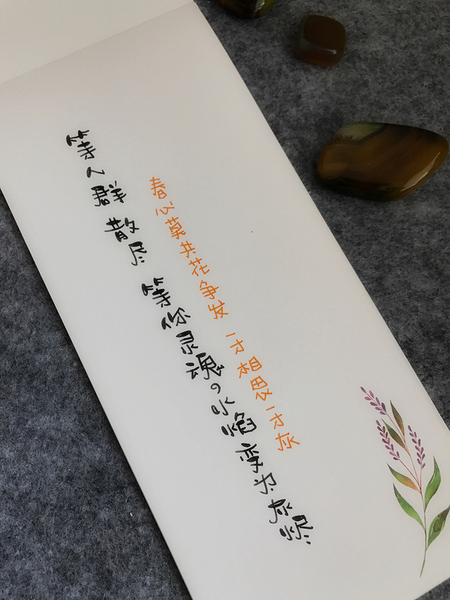 等人群散尽 等你灵魂的火焰变为灰烬
春心莫共花争发 一寸相思一寸灰